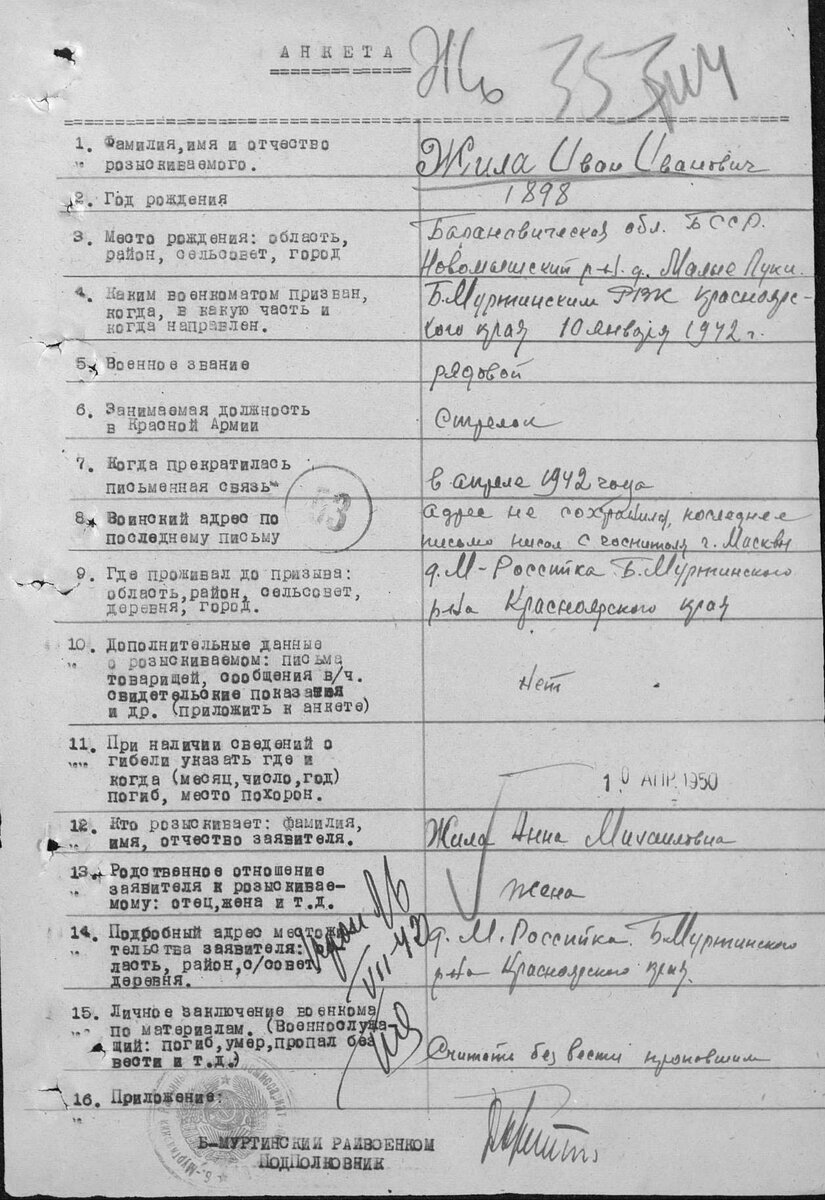 АНКЕТА
Жь
1. Фамилия,имя и отчество
розыскиваемого.
Жила Иван Иванович
2. Год рождения
1898
3. Место рождения: область,
район, сельсовет, город
Барановическая обл. БССР.
Новомышский р-н. д. Малые Луки.
4. Каким военкоматом призван,
когда, в какую часть и
когда направлен.
Б.Муртинским РВК Краснояр-
ского края 10 января 1942 г.
5. Военное звание
рядовой
6. Занимаемая должность
в Красной Армии
Стрелок
7. Когда прекратилась
письменная связь
в апреле 1942 года
8. Воинский адрес по
последнему письму
53
адрес не сохранился, последнее
письмо писал с госпиталя г. Москвы
9. Где проживал до призыва:
область,район, сельсовет,
деревня, город.
д. М-Росситка Б.Муртинского
р-на Красноярского края
10. Дополнительные данные
о розыскиваемом: письма
товарищей, сообщения в/ч.
свидетельские показания
и др. (приложить к анкете)
Нет
11. При наличии сведений о
гибели указать где и
когда (месяц,число,год)
погиб, место похорон.
10 АПР 1950
12. Кто розыскивает: фамилия,
имя, отчество заявителя.
Жила Анна Михаиловна
13. Родственное отношение
заявителя к розыскивае-
мому: отец,жена и т.д.
жена
14. Подробный адрес местожи
тельства заявителя:
ласть, район,с/совет,
деревня.
д. М. Росситка Б.Муртинского
р-на Красноярского края.
VII-42
15. Личное заключение военкома
по материалам. (Военнослужа-
щий: погиб,умер,пропал без
вести и т.д.)
Считать без вести пропавшим
16. Приложение:
Б-МУРТИНСКИЙ РАЙВОЕНКОМ
ПОДПОЛКОВНИК